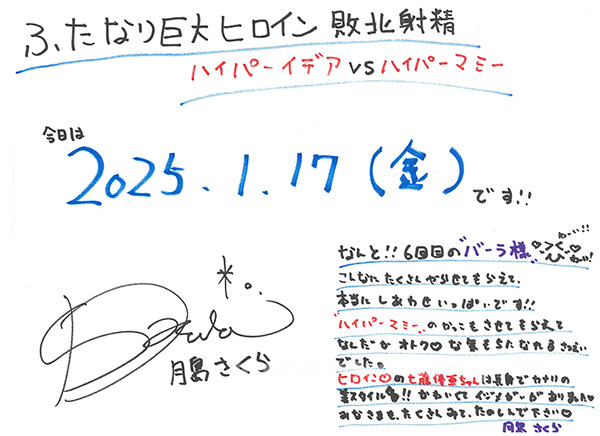 ふたなり巨大ヒロイン 敗北射精
ハイパーイデア vs ハイパーマミー
今日は
2025.1.17(金)
です!!
なんと!! 6回目の"バーラ様"
こんなにたくさんやらせてもらえて、
本当にしあわせいっぱいです!!
"ハイパーマミー"のかっこもさせてもらえて
なんだかオトク♡な気もちになれるさつえい
でした。
ヒロイン♡の七瀬優亜ちゃんは長身でカナリの
美スタイル かわいくてイジメがいがありました♡
みなさまも、たくさんみて、たのしんで下さい♡
月島さくら
月島 さくら